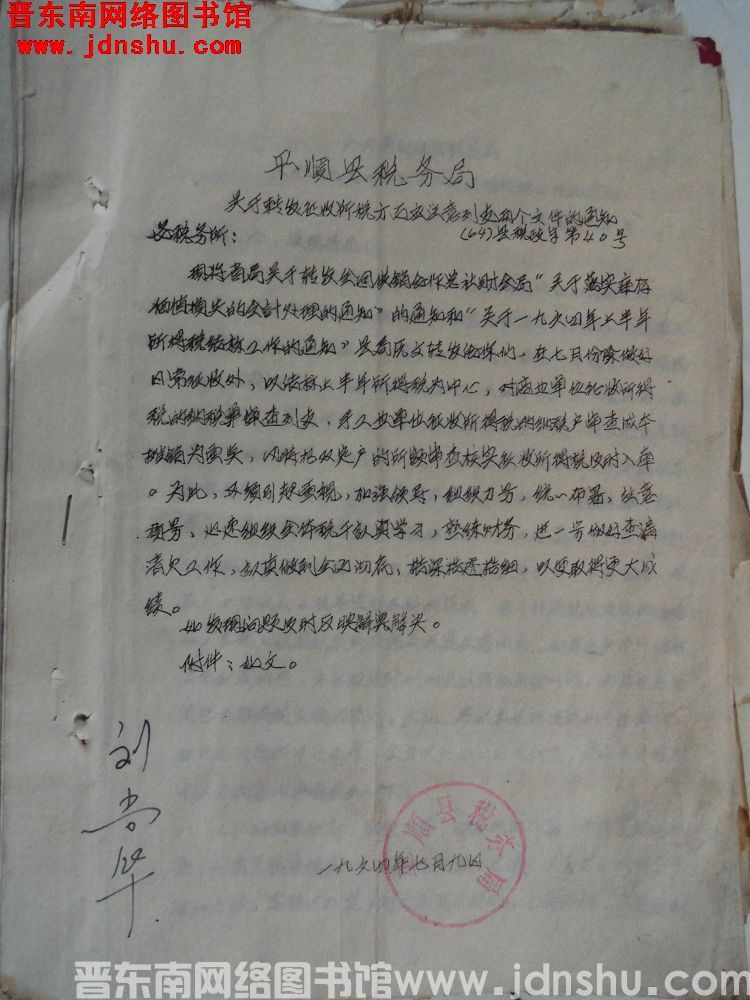 晋东南网络图书馆
www.jdnshu.com
平顺县税务局
关于转发征收所税方面应注意列支两个文件的通知
(64)县税政字第40号
各税务所：
现将省局关于转发全国供销合作总社财会局“关于落实库存
价值损失的会计处理的通知”的通知和“关于一九六四年上半年
所得税结算工作的通知”县局具文转发给你们，在七月份除做好
日常征收外，以结算上半年所得税为中心，对商业单位征收所得
税的纳税单审查列支，手工业单位征收所得税的纳税户审查成本
摊销为重点，
的所额审查核实征收所得税及时入库
。为此，必须引起重视，加强领导，组织力量，统一布署，注意
政策、迅速组织全体税干认真学习，熟练财务，进一步做好查漏
清欠工作，认真做到全面彻底，
细，以便取得更大成
绩。
如发现问题及时反映
解决。
附件：如文。
一九六四年七月九日
平顺县税务局
刘尚华
晋东南网络图书馆www.jdnshu.com